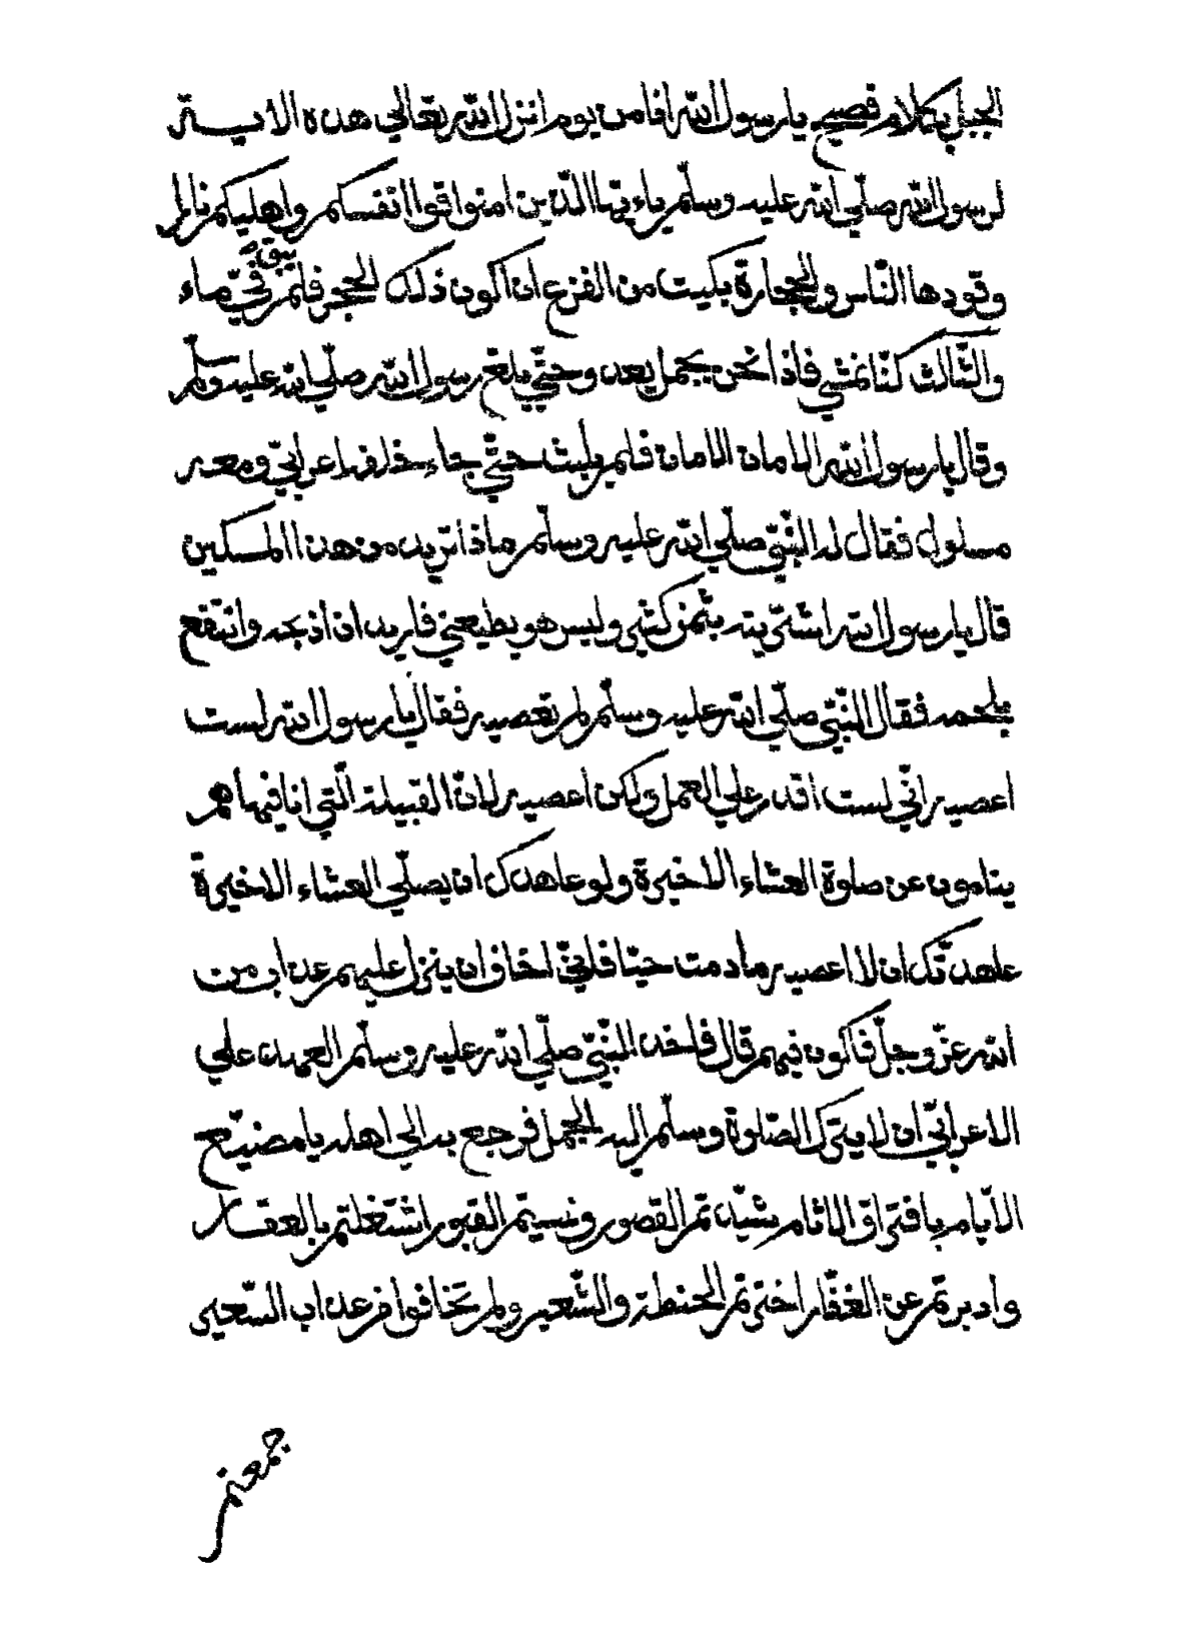 الجبل بكلام فصيح يا رسول الله انا من يوم انزل الله تعالى هذه الاية
لرسول الله صلّى الله عليه وسلّم ياءيّها الّذين امنوا قوا انفسكم واهليكم نارا
وقودها النّاس والحجارة بكيت من الفزع ان اكون ذلك الحجر فلم يبق فيّ ماء
والثّالث كنّا نمشي فاذا نحن بجمل يعدو حتّى بلغ رسول الله صلّى الله عليه وسلّم
وقال يا رسول الله الامان الامان فلم يلبث حتّى جاء خلفه اعرابيّ ومعه
مسلول فقال له النّبيّ صلّى الله عليه وسلّم ماذا تريد من هذا المسكين
قال يا رسول الله اشتريته بثمن كثير وليس هو يطيعني فاريد ان اذبحه وانتفع
بلحمه فقال النّبيّ صلّى الله عليه وسلّم لم تعصيه فقال يا رسول الله لست
اعصيه انّي لست اقدر على العمل ولكن اعصيه لانّ القبيلة الّتي انا فيها هم
ينامون عن صلوة العشاء الاخيرة ولو عاهدك ان يصلّي العشاء الاخيرة
عاهدتك ان لا اعصيه ما دمت حيّا فانّي اخاف ان ينزل عليهم عذاب من
الله عزّ وجلّ فاكون فيهم قال فاخذ النّبيّ صلّى الله عليه وسلّم العهد على
الاعرابيّ ان لا يترك الصّلوة وسلّم اليه الجمل فرجع به الى اهله يا مضيّع
الايّام يا فتراق الاثام شيّدتم القصور ونسيتم القبور اشتغلتم بالعقار
وادبرتم عن الغفّار اخترتم الحنطة والشّعير ولم تخافوا من عذاب السّعير
جمعتم